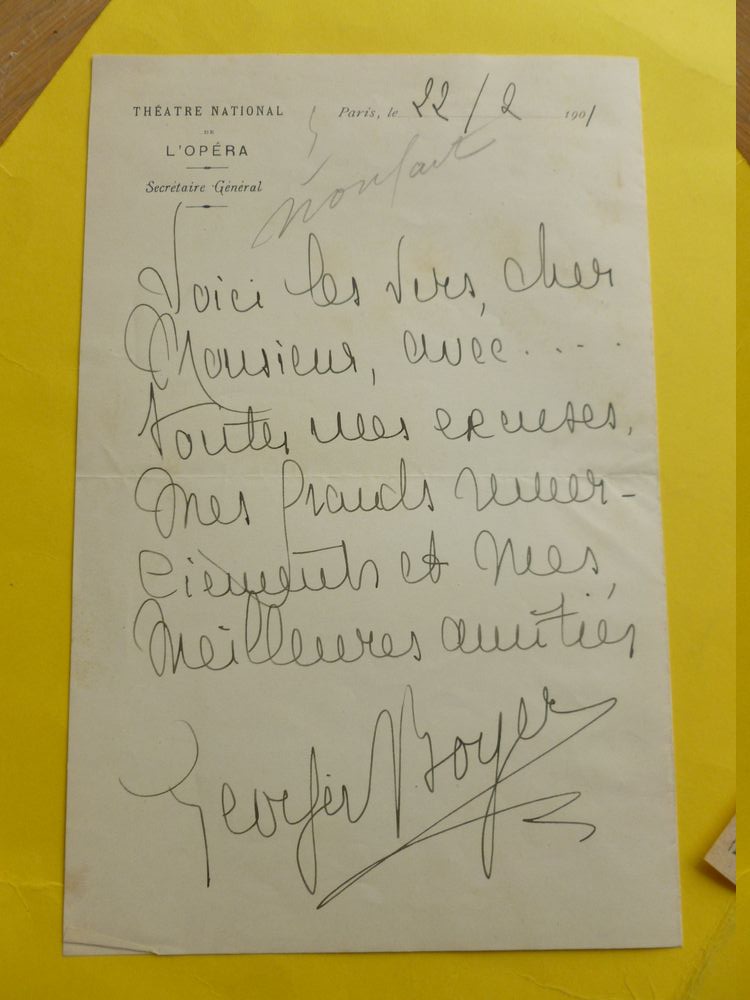 THÉATRE NATIONAL
DE
L'OPÉRA
Secrétaire Général
Paris, le 22/2 1901
Voici les vers, cher
Monsieur, avec ....
toutes mes excuses,
Mes grands remer-
ciements et mes
meilleures amitiés
Georges Boyer